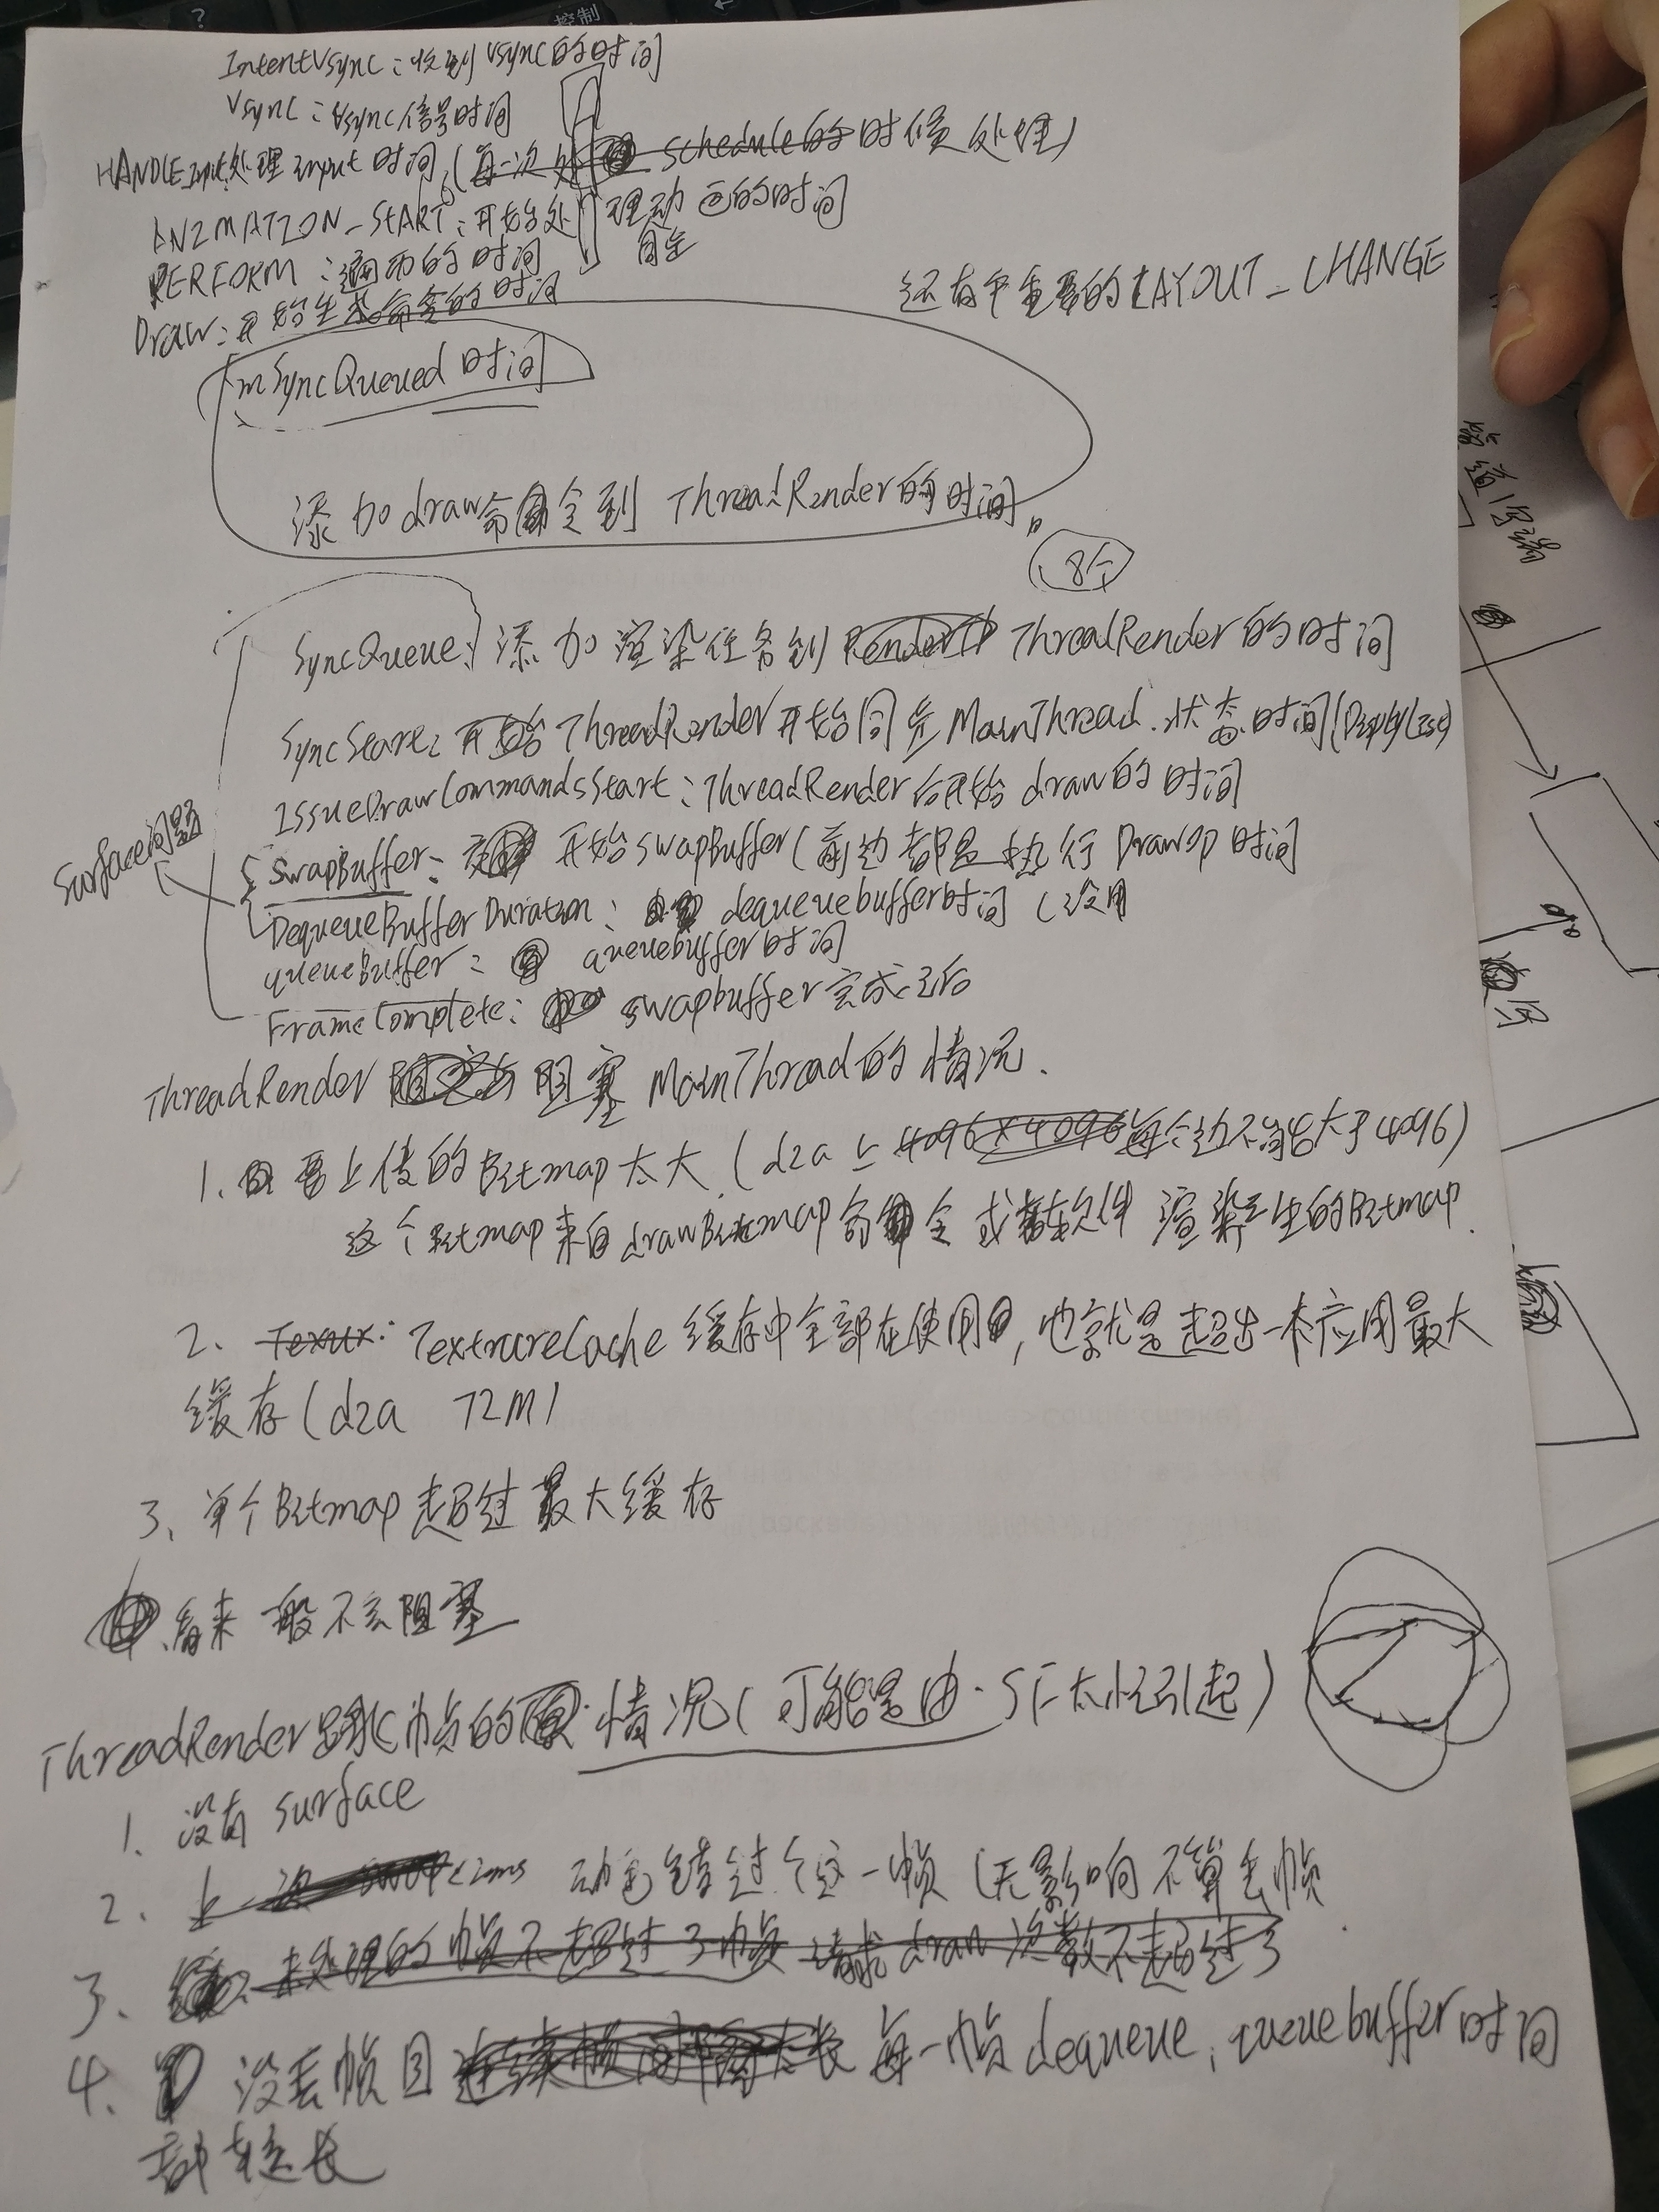 控制
IntentVsync：收到Vsync的时间
Vsync：Vsync信号时间
HANDLE Input处理input时间（每一次 schedule的时候处理）
ANIMATION_START：开始处理动画的时间
PERFORM：遍历的时间
还有个重要的LAYOUT_CHANGE
Draw：开始生成命令的时间
mSyncQueued时间
添加draw命令到 ThreadRender的时间。
8个
SyncQueue：添加渲染任务到 ThreadRender的时间
SyncStart：ThreadRender开始同步MainThread.状态时间(DisplayList)
IssueDrawCommandsStart：ThreadRender开始draw的时间
Surface问题
SwapBuffer：开始swapBuffer（前边都是执行DrawOp时间
DequeueBufferDuration：dequeuebuffer时间（没用
queueBuffer：queuebuffer时间
FrameComplete：swapbuffer完成之后
ThreadRender 阻塞 MainThread的情况.
1、要上传的Bitmap太大.（d2a上 4096×4096 每个边不能大于4096）
这个Bitmap来自drawBitmap命令或者软件渲染产生的Bitmap.
2、 TextrureCache 缓存中全部在使用，也就是超出一本应用最大
缓存（d2a 72M）
3、单个Bitmap超过最大缓存
看来一般不会阻塞
ThreadRender跳帧的情况（可能是由.SF太忙引起）
1. 没有surface
2. 上一次swap<2ms 动画错过个这一帧（无影响不算丢帧
3. 未处理的帧不超过3帧 请求draw次数不超过3
4. 没丢帧 每一帧dequeue，queuebuffer时间
都较长